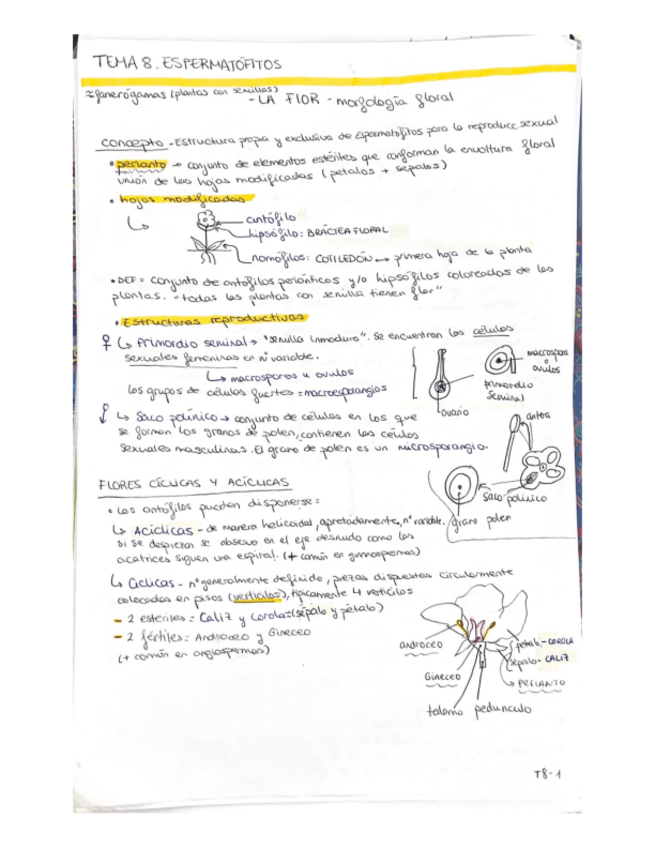 TEMA 8. ESPERMATÓFITOS
≈fanerógamas (plantas con semillas)
- LA FLOR - morfología floral
Concepto - Estructura propia y exclusiva de espermatofitos para la reproducc sexual
• perianto → conjunto de elementos estériles que conforman la envoltura floral
unión de las hojas modificadas (petalos + sépalos)
• hojas modificadas
antófilo
hipsófilo: BRÁCTEA FLORAL
nomófilos: COTILEDÓN → primera hoja de la planta
• DEF = conjunto de antofilos periánticos y/o hipsófilos coloreados de las
plantas. "todas las plantas con semilla tienen flor"
• Estructuras reproductivas
♀ ↳ Primordio seminal → "semilla inmadura". Se encuentran las células
sexuales femeninas en nº variable.
↳ macrosporas u ovulos
los grupos de células fuertes = macroesporangios
macrospora
óvulos
primordio
seminal
ovario
↳ Saco polínico → conjunto de células en los que
se forman los granos de polen, contienen las células
sexuales masculinas. El grano de polen es un microsporangio.
antera
saco polínico
grano polen
FLORES CÍCLICAS Y ACÍCLICAS
• Los antófilos pueden disponerse =
↳ Acíclicas - de manera helicoidal, apretadamente, nº variable.
si se despiezan se observa en el eje desnudo como las
cicatrices siguen una espiral. (+ común en gimnospermas)
↳ Cíclicas - nº generalmente definido, piezas dispuestas circularmente
colocadas en pisos (verticilos), típicamente 4 verticilos
- 2 estériles = Caliz y corola = (sépalo y pétalo)
- 2 fértiles = Androceo y Gineceo
(+ común en angiospermas)
androceo
Gineceo
pétalo - COROLA
sépalo - CALIZ
↳ PERIANTO
talamo pedunculo
T8-1